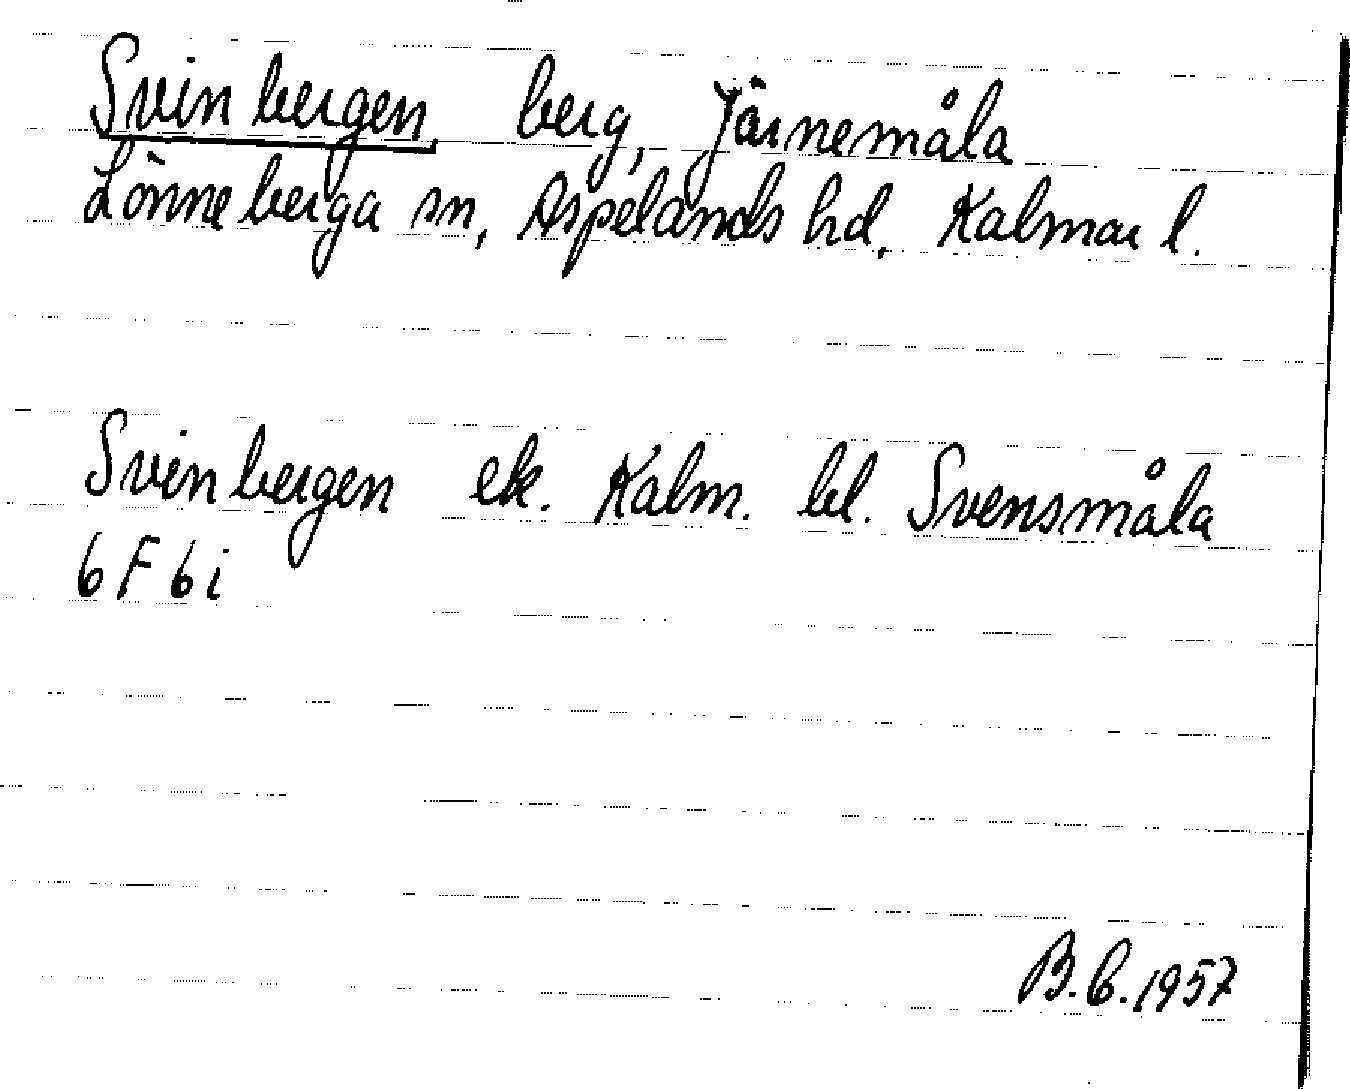 Svinbergen, berg, Järnemåla
Lönneberga sn, Aspelands hd, Kalmar l.
Svinbergen ek. Kalm. bl. Svensmåla
6 F 6 i
B.C. 1957